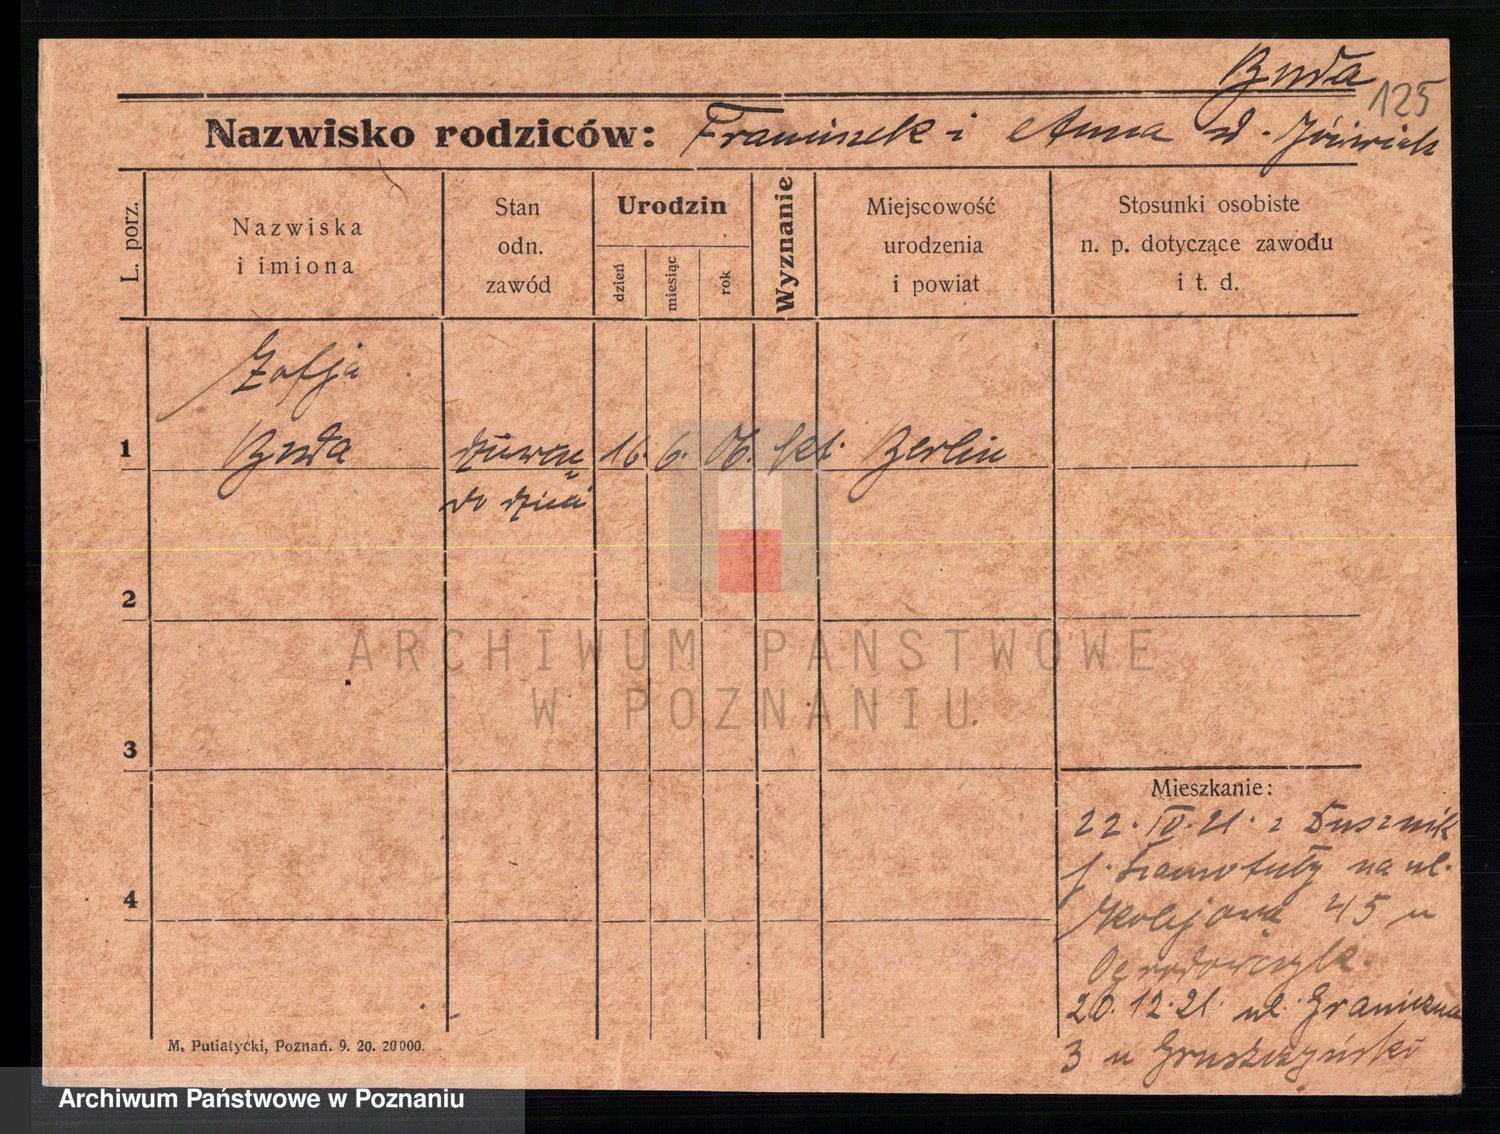 Buda
125
Nazwisko rodziców: Franciszek i Anna z d. Jóźwiak
L. porz.
Nazwiska
i imiona
Stan
odn.
zawód
Urodzin
dzień
miesiąc
rok
Wyznanie
Miejscowość
urodzenia
i powiat
Stosunki osobiste
n. p. dotyczące zawodu
i t. d.
Zofja
1 Buda dziewczę 16. 6. 06. kt. Berlin
do dzieci
2
3
4
Mieszkanie:
22. IV. 21. z Dusznik
p. Szamotuły na ul.
Kolejową 45 u
Ogrodowczyk.
20. 12. 21. ul. Graniczna
3 u Gruszczyński
M. Putiatycki, Poznań. 9. 20. 20000.
ARCHIWUM PAŃSTWOWE
W POZNANIU
Archiwum Państwowe w Poznaniu